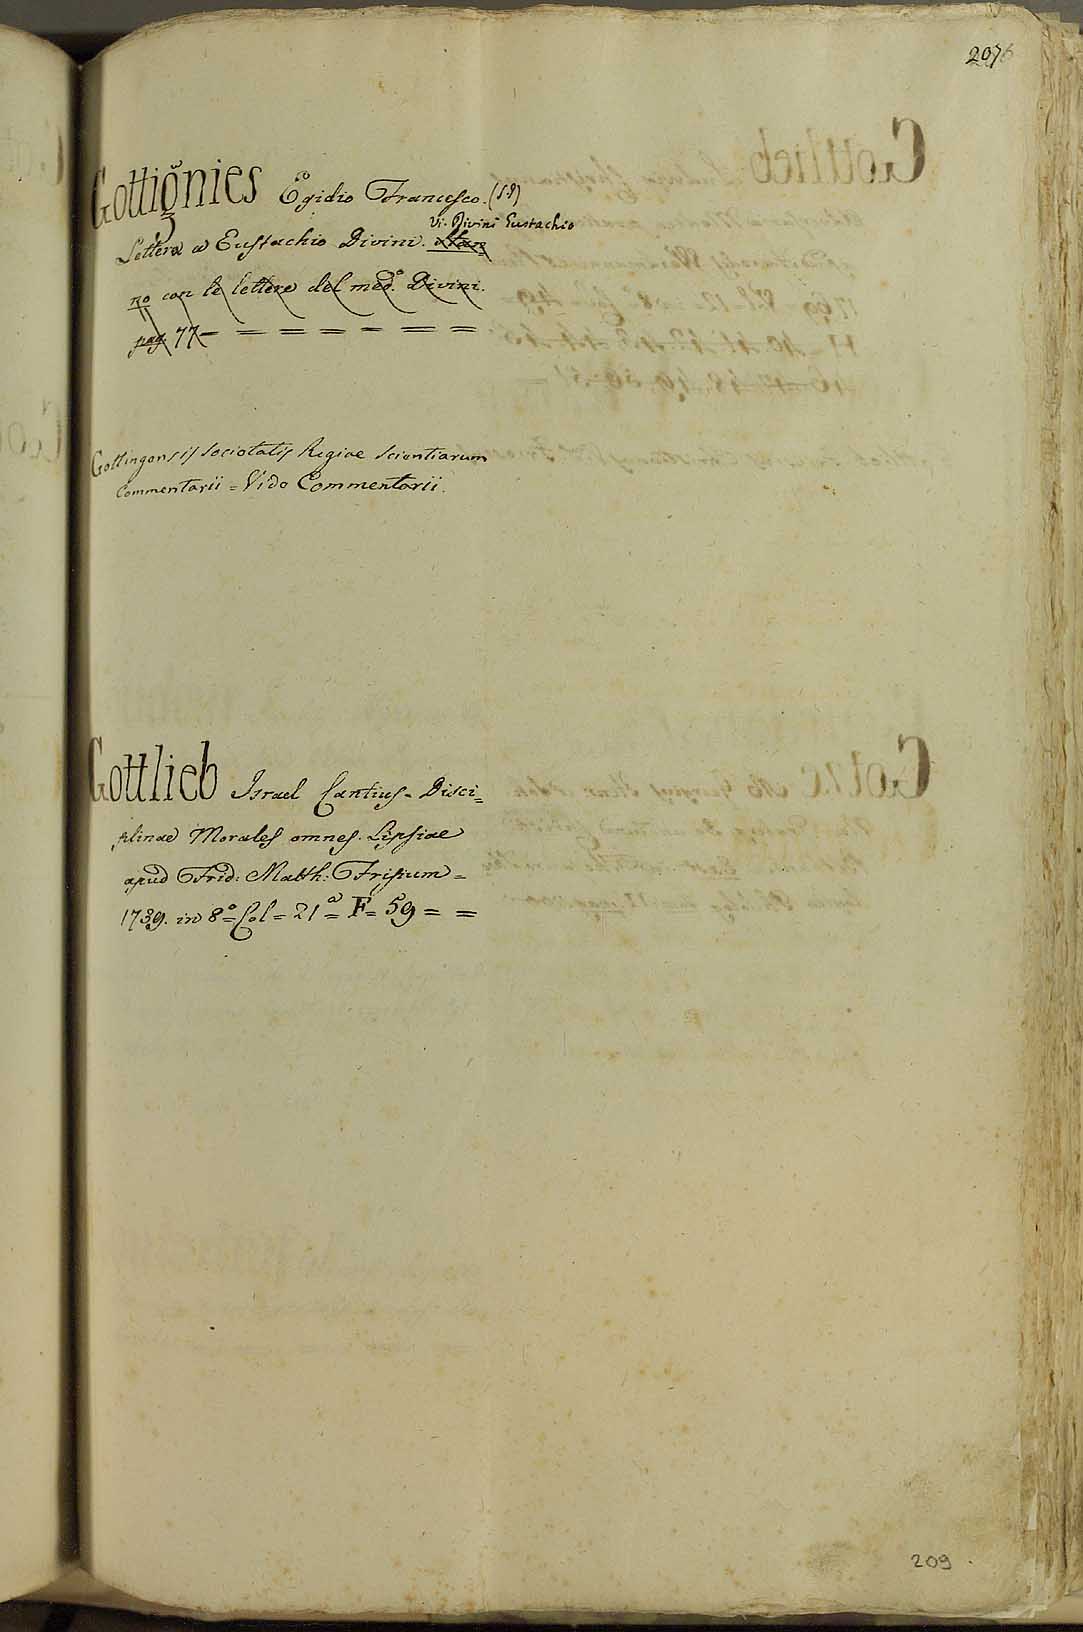 207
Gottignies Egidio Francesco. (S.J)
Vi. Divini Eustachio
Lettera a Eustachio Divini. stan
no con le lettere del med.º Divini.
pag. 77 - - = = = = = = =
Gottingensis societatis Regiae scientiarum
Commentarii = Vide Commentarii.
Gottlieb Israel Cantius - Disci=
plinae Morales omnes. Lipsiae
apud Frid: Matth: Frisium =
1739. in 8º = Col = 21ª = F = 59 = =
209